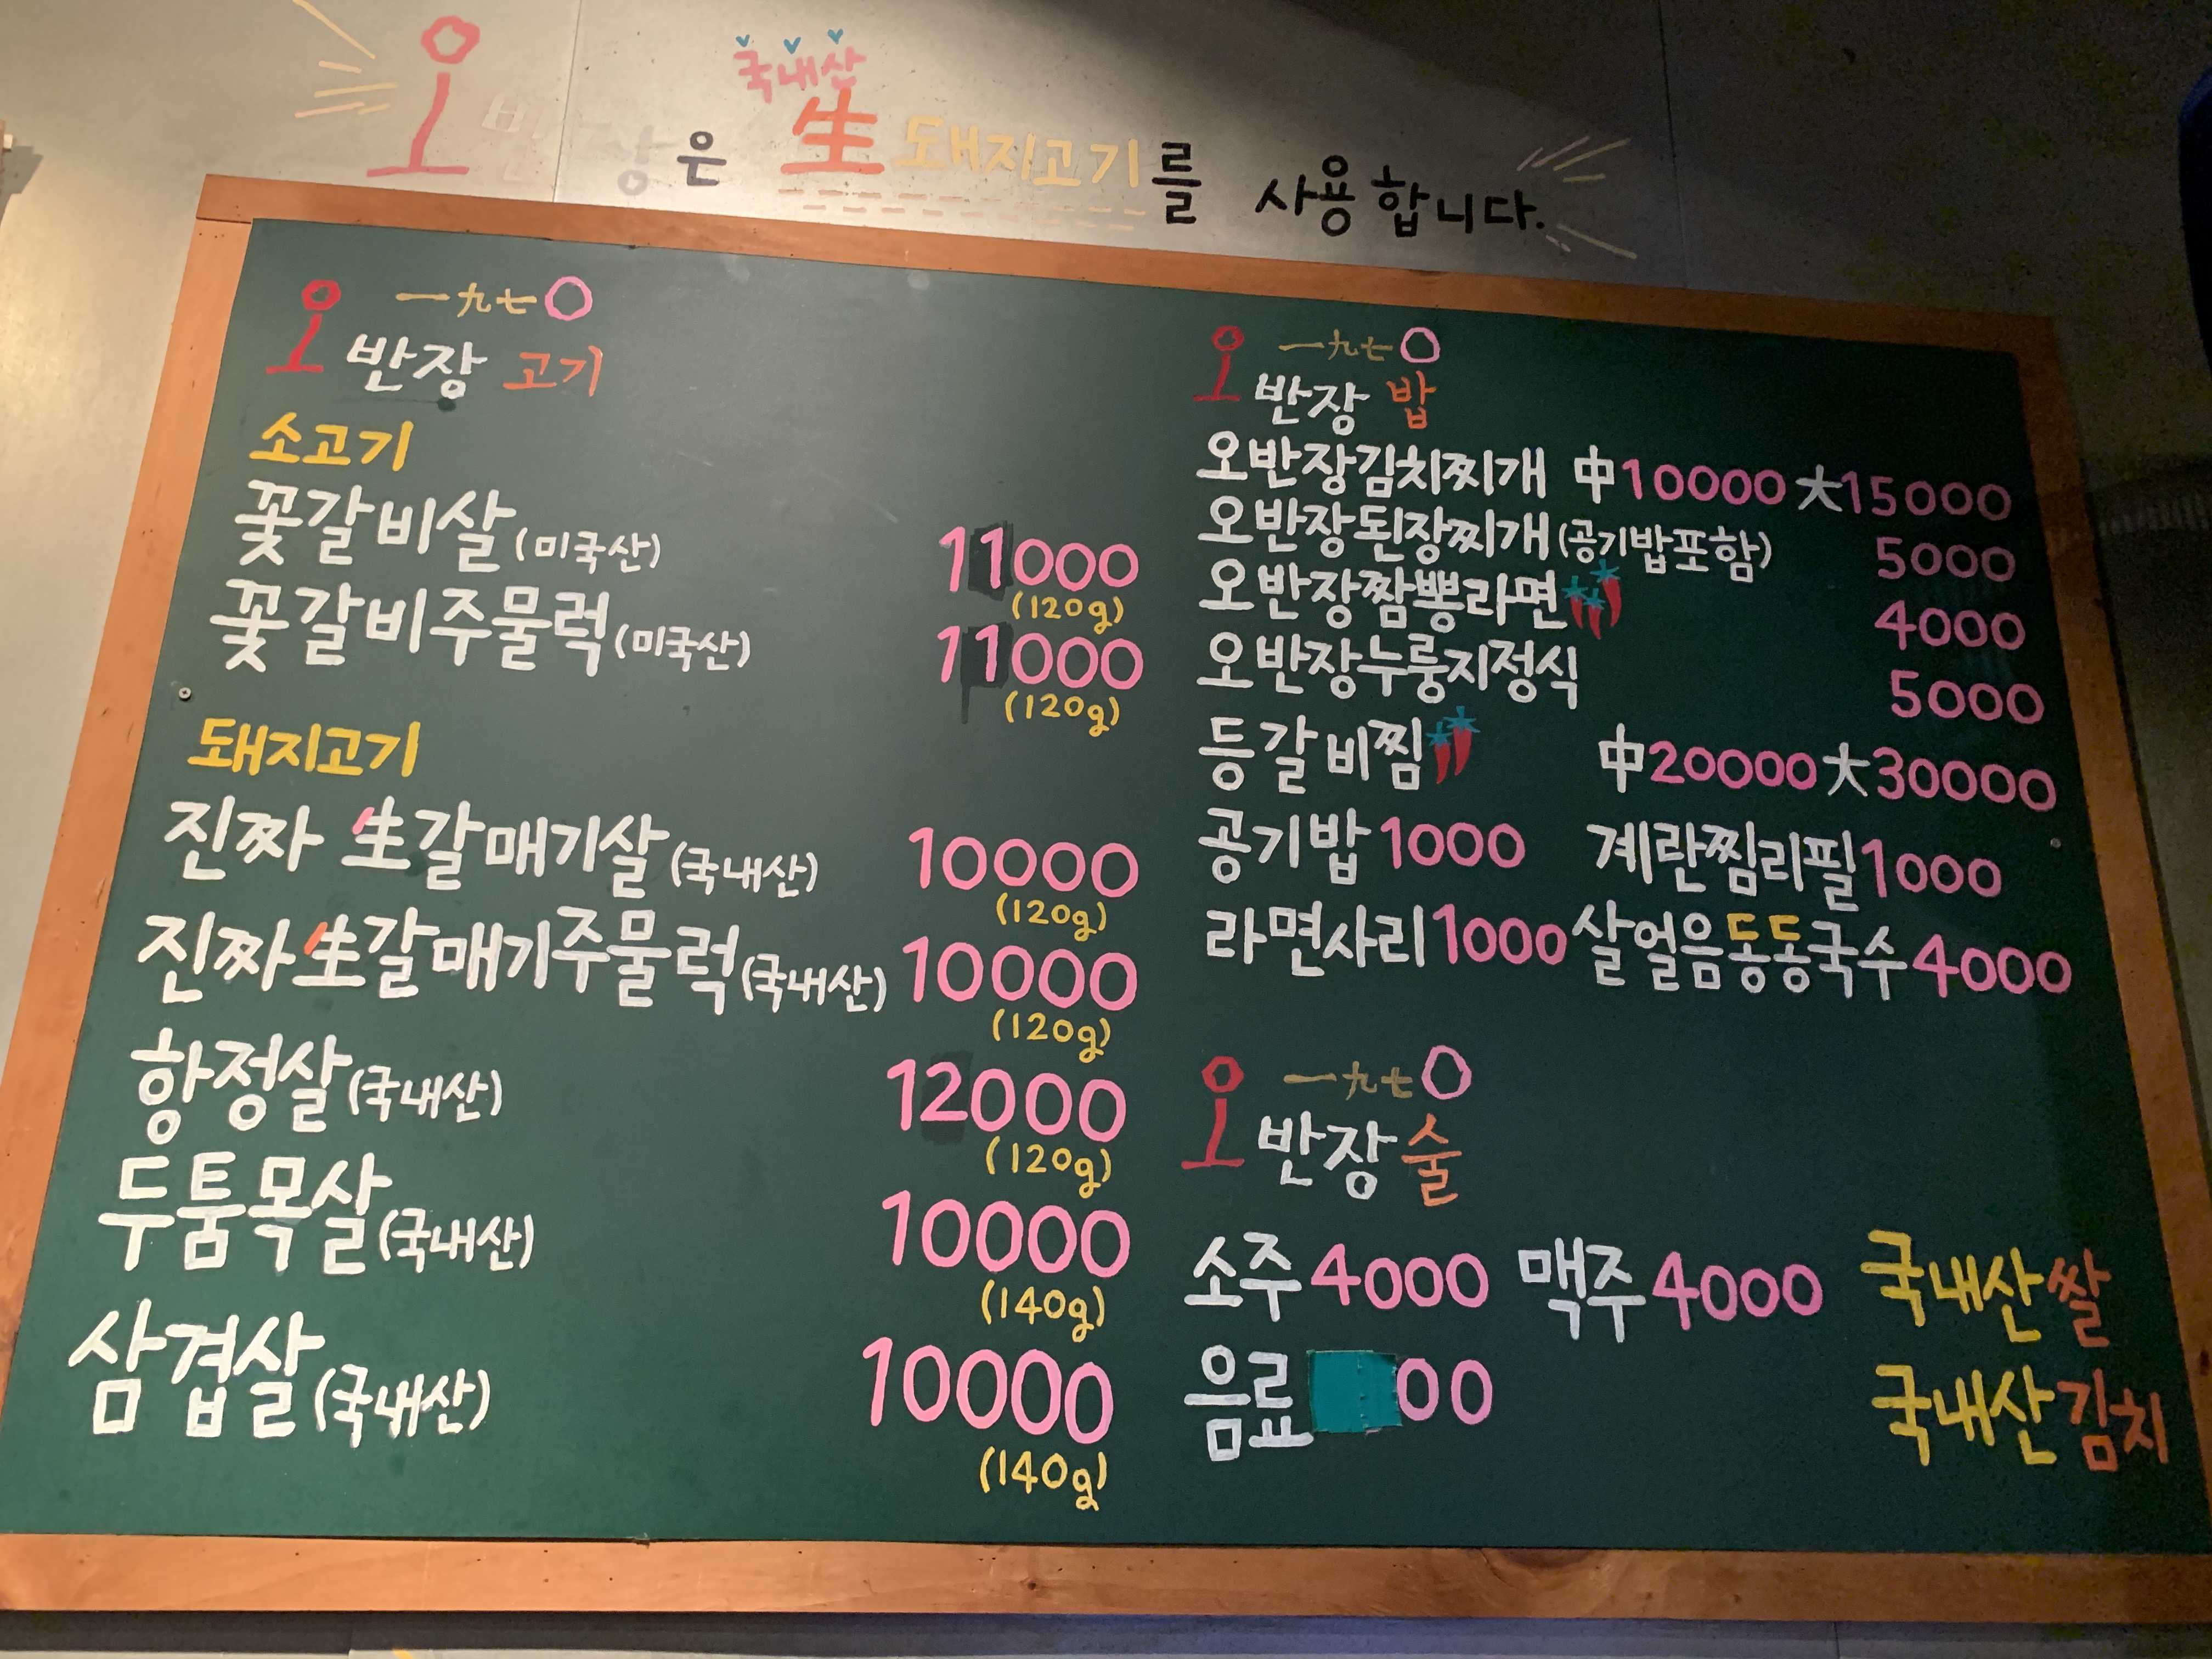 국내산
오반장은 生돼지고기를 사용합니다.
一九七〇
오반장 고기
소고기
꽃갈비살(미국산) 11000
(120g)
꽃갈비주물럭(미국산) 11000
(120g)
돼지고기
진짜 生갈매기살(국내산) 10000
(120g)
진짜生갈매기주물럭(국내산) 10000
(120g)
항정살(국내산) 12000
(120g)
두툼목살(국내산) 10000
(140g)
삼겹살(국내산) 10000
(140g)
一九七〇
오반장 밥
오반장김치찌개 中10000大15000
오반장된장찌개(공기밥포함) 5000
오반장짬뽕라면 4000
오반장누룽지정식 5000
등갈비찜 中20000大30000
공기밥1000 계란찜리필1000
라면사리1000살얼음동동국수4000
一九七〇
오반장술
소주4000 맥주4000 국내산쌀
음료 00 국내산김치